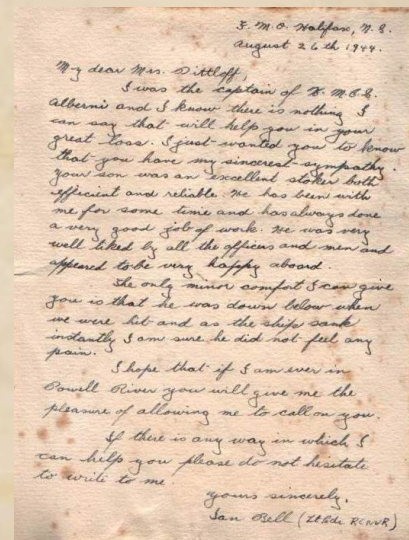 F. M. O. Halifax, N. S.
August 26th 1944.
My dear Mrs. Dittloff,
I was the captain of H. M. C. S.
Alberni and I know there is nothing I
can say that will help you in your
great loss. I just wanted you to know
that you have my sincerest sympathy.
your son was an excellent stoker both
efficient and reliable. He has been with
me for some time and has always done
a very good job of work. He was very
well liked by all the officers and men and
appeared to be very happy aboard.
The only minor comfort I can give
you is that he was down below when
we were hit and as the ship sank
instantly I am sure he did not feel any
pain.
I hope that if I am ever in
Powell River you will give me the
pleasure of allowing me to call on you.
If there is any way in which I
can help you please do not hesitate
to write to me
yours sincerely,
Ian Bell (Lt Cdr RCNVR)